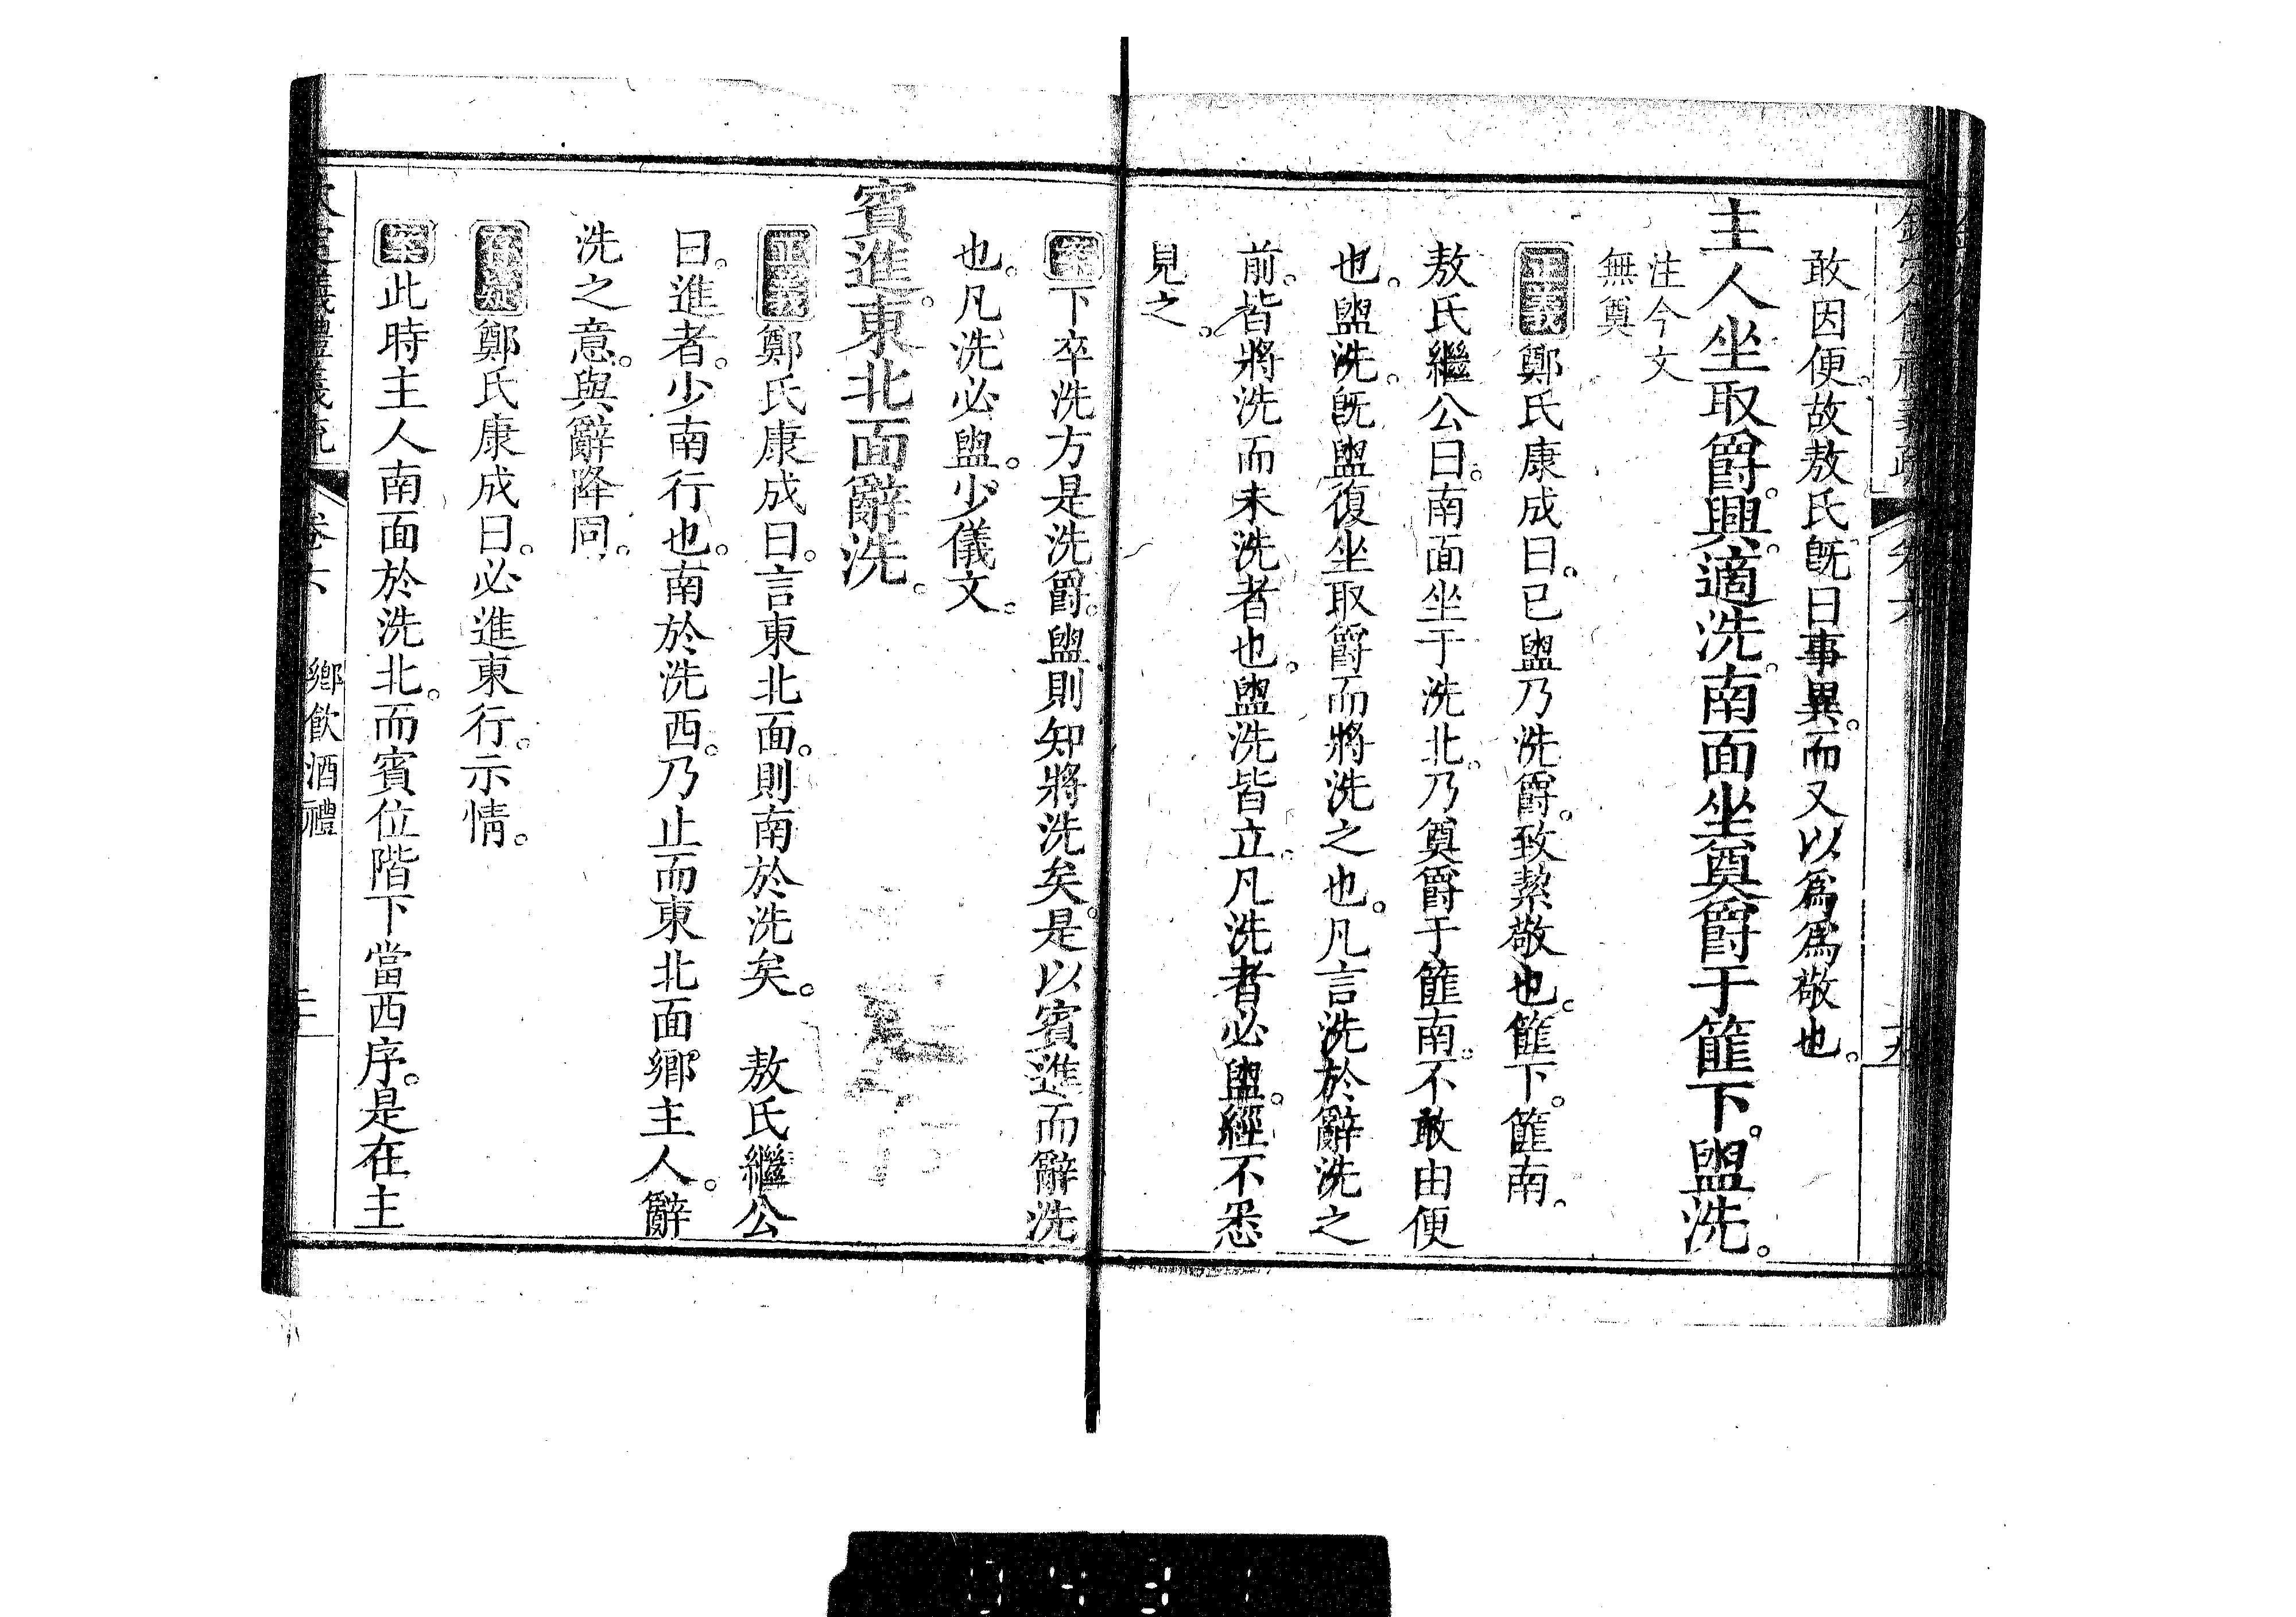 敢因便。故敖氏旣曰事異。而又以爲爲敬也。
主人坐取爵。興。適洗。南面坐奠爵于篚下。盥洗。
注今文
無奠
正義鄭氏康成曰。已盥乃洗爵。致絜敬也。篚下。篚南。
敖氏繼公曰。南面坐于洗北。乃奠爵于篚南。不敢由便
也。盥洗。旣盥復坐取爵而將洗之也。凡言洗於辭洗之
前。皆將洗而未洗者也。盥洗皆立。凡洗者必盥。經不悉
見之。
案下卒洗方是洗爵。盥則知將洗矣。是以賓進而辭洗
也。凡洗必盥。少儀文。
賓進。東北面辭洗。
正義鄭氏康成曰。言東北面。則南於洗矣。 敖氏繼公
曰。進者。少南行也。南於洗西。乃止而東北面鄉主人。辭
洗之意。與辭降同。
存疑鄭氏康成曰。必進東行。示情。
案此時主人南面於洗北。而賓位階下當西序。是在主
卷六 鄉飲酒禮